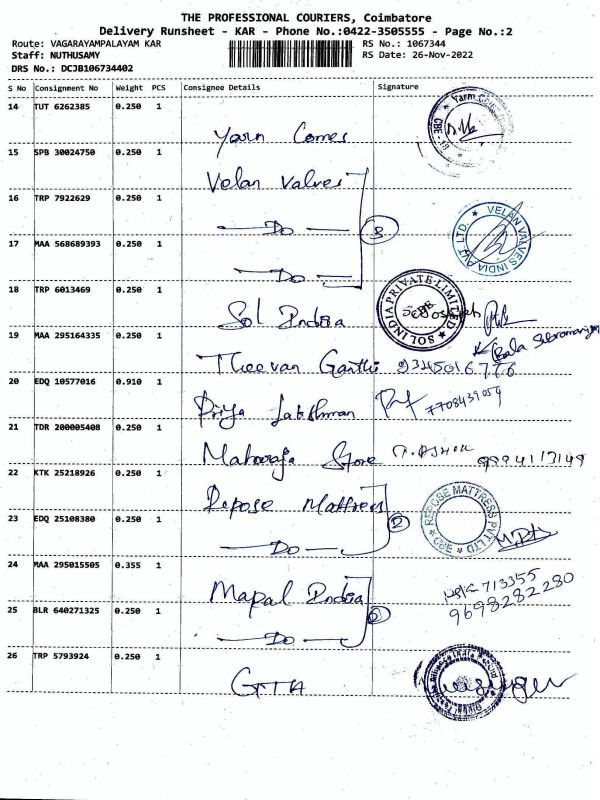 THE PROFESSIONAL COURIERS, Coimbatore
Delivery Runsheet - KAR - Phone No.:0422-3505555 - Page No.:2
Route: VAGARAYAMPALAYAM KAR RS No.: 1067344
Staff: NUTHUSAMY RS Date: 26-Nov-2022
DRS No.: DCJB106734402
S No Consignment No Weight PCS Consignee Details Signature
14 TUT 6262385 0.250 1
Yarn Comes
15 SPB 30024750 0.250 1
Velan Valves
16 TRP 7922629 0.250 1
Do 3
VELAN VALVES INDIA PVT. LTD.
17 MAA 568689393 0.250 1
Do
18 TRP 6013469 0.250 1
Sol India
SOL INDIA PRIVATE LIMITED
19 MAA 295164335 0.250 1
Theevan Ganthi
20 EDQ 10577016 0.910 1
Priya Lakshman 7708431054
21 TDR 200005408 0.250 1
Maharaja Store 9994113149
22 KTK 25218926 0.250 1
Repose Mattress
REPOSE MATTRESS PVT LTD CBE
23 EDQ 25108380 0.250 1
Do 2
24 MAA 295015505 0.355 1
Mapal India
713355
9698282280
25 BLR 640271325 0.250 1
Do 2
26 TRP 5793924 0.250 1